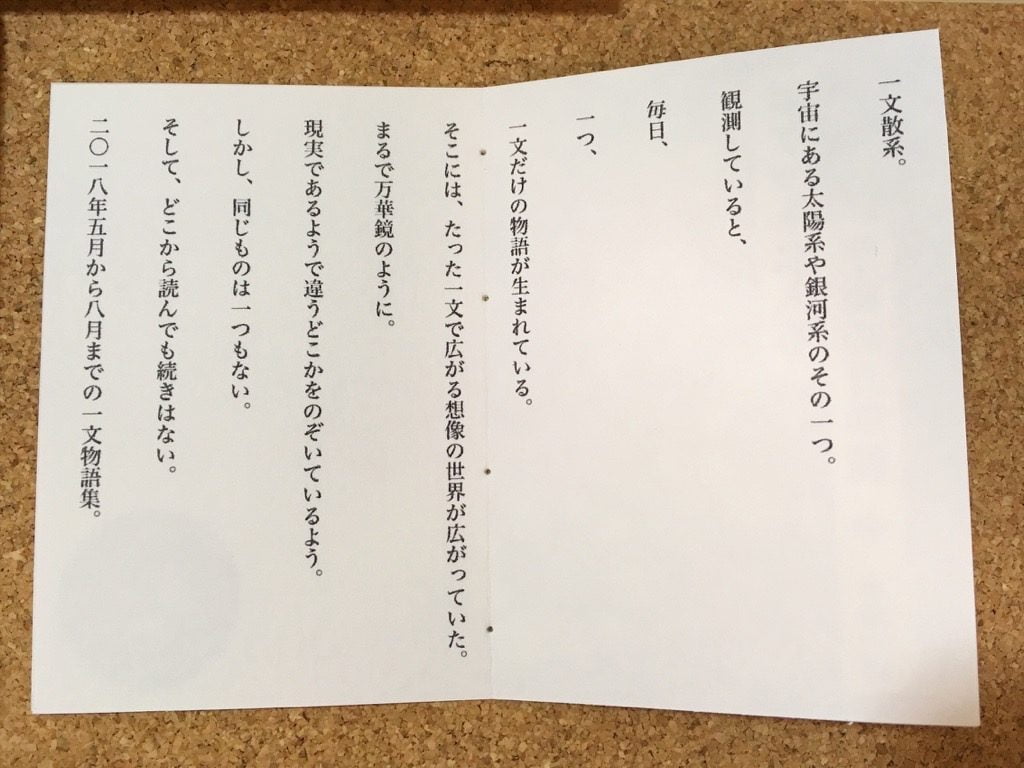 一文散系。
宇宙にある太陽系や銀河系のその一つ。
観測していると、
毎日、
一つ、
一文だけの物語が生まれている。
そこには、たった一文で広がる想像の世界が広がっていた。
まるで万華鏡のように。
現実であるようで違うどこかをのぞいているよう。
しかし、同じものは一つもない。
そして、どこから読んでも続きはない。
二〇一八年五月から八月までの一文物語集。